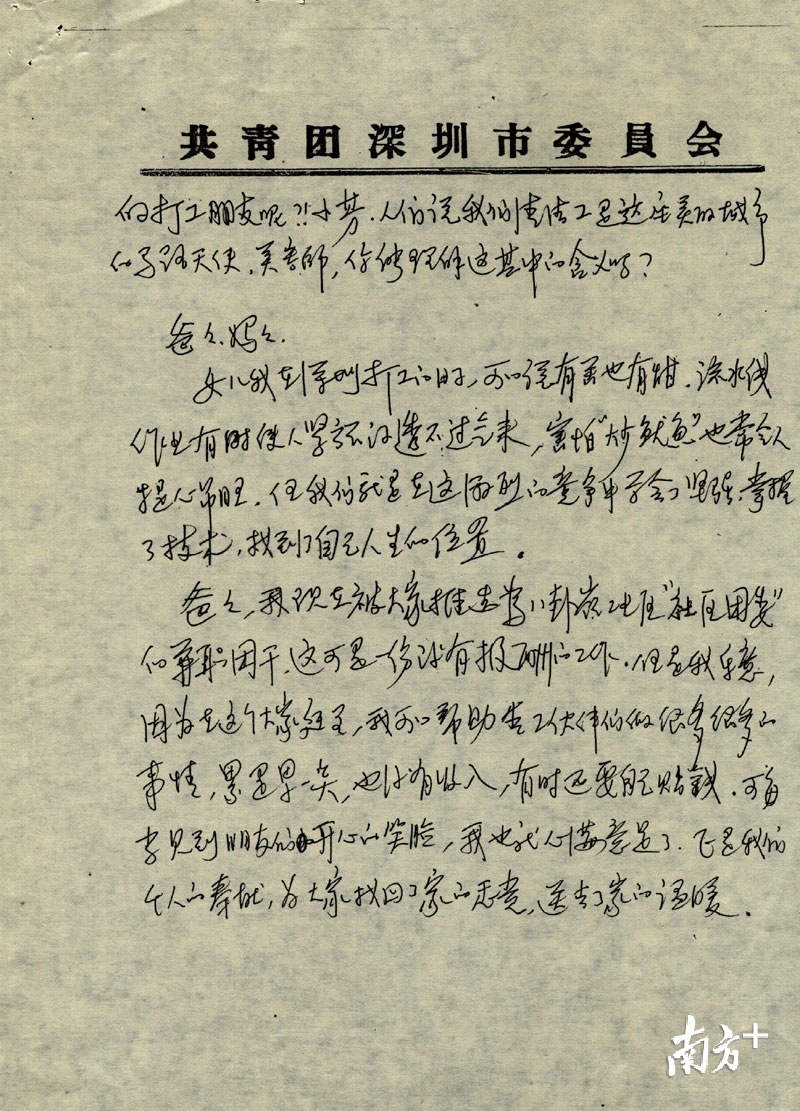 共青团深圳市委員会
的打工朋友呢?!小芳.人们说我们清洁工是这座美的城市
的马路天使.美容师,你能理解这其中的含义吗?
爸々.妈々.
女儿我在深圳打工的日子,可以说有苦也有甜.流水线
作业有时使人紧张的透不过气来,害怕“炒鱿鱼”也常令人
提心吊胆.但我们就是在这激烈的竞争中学会了坚强.掌握
了技术,找到了自己人生的位置。
爸々,我现在被大家推选为八卦岭工业区“社区团委”
的兼职团干.这可是一份没有报酬的工作.但是我乐意,
因为在这个大家庭里,我可以帮助告工伙伴们做很多很多的
事情,累是累一些,也没有收入,有时还要自己贴钱.可每
当见到朋友们开心的笑脸,我也就心满意足了.正是我们
个人的奉献,为大家找回了家的感觉,送去了家的温暖.
南方+